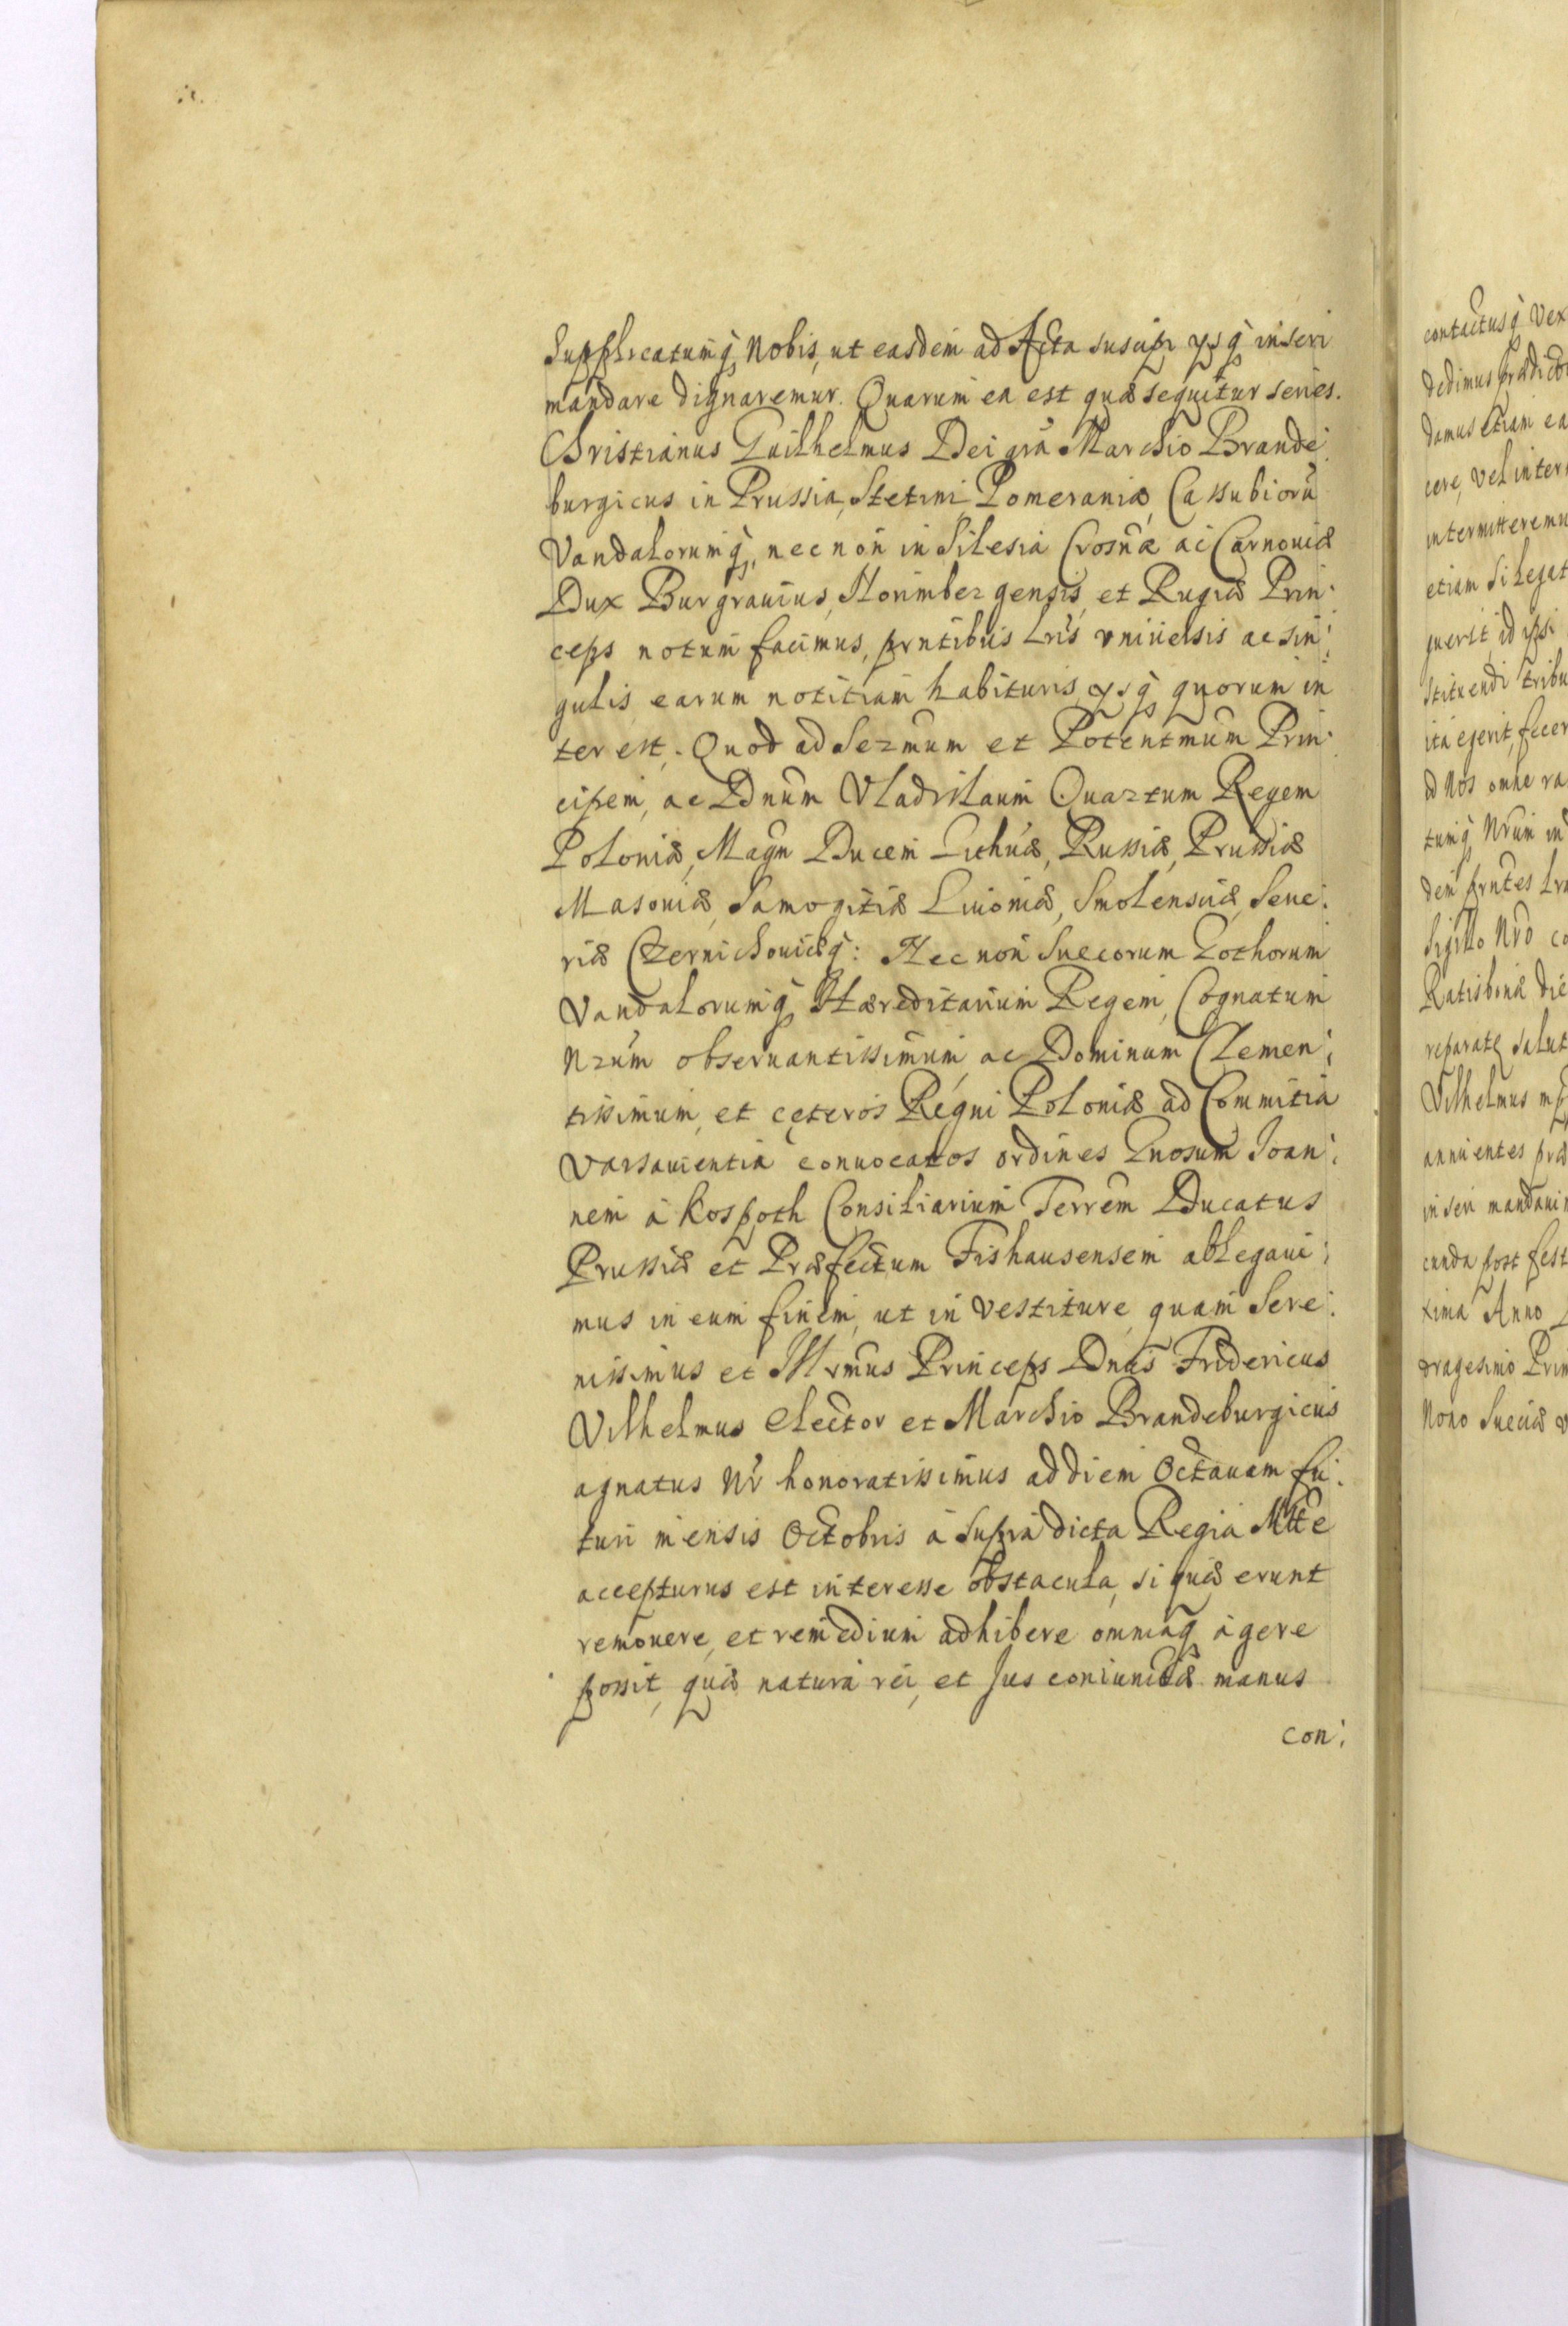 Supplicatumq̃ Nobis, ut easdem ad Acta suscipi ysq̃ inseri
mandare dignaremur. Quarum ea est quæ sequitur series.
Christianus Guilhelmus Dei grã Marchio Brande:
burgicus in Prussia, Stetini, Pomeraniæ, Cassubiorũ
Vandalorumq̃, nec non in Silesia Crosnæ ac Carnouiæ
Dux Burgrauius, Norimbergensis, et Rugiæ Prin:
ceps notum facimus, prntibus Lris vniuersis ac sin:
gulis, earum notitiam habituris, ysq̃ quorum in
terest. Quod ad Sermum et Potentmum Prin:
cipem, ac Dnum Vladislaum Quartum Regem
Poloniæ, Magn Ducem Lithuæ, Russiæ, Prussiæ
Masouiæ, Samogitiæ Liuoniæ, Smolensciæ, Seue:
riæ Czernichouiæq̃: Nec non Suecorum Gothorum
Vandalorumq̃ Hæreditarium Regem, Cognatum
Nrum obseruantissimum, ac Dominum Clemen:
tissimum, et cęteros Regni Poloniæ ad Commitia
Varsauientia conuocatos ordines Gnosum Ioan:
nem à Kospoth Consiliarium Terrem Ducatus
Prussiæ et Præfectum Fishausensem ablegaui:
mus in eum finem, ut in vestiture, quam Sere:
nissimus et Illrmus Princeps Dnus Fridericus
Vilhelmus Elector et Marchio Brandeburgicus
agnatus Nr honoratissimus ad diem Octauam fu:
turi mensis Octobris à Supra dicta Regia Mtte
accepturus est interesse obstacula, si quæ erunt
remouere, et remedium adhibere omniaq̃ agere
possit, quæ natura rei, et Jus coniunctæ manus
con:
contactusq̃ Vex
dedimus prædicto
damus etiam ea
cere, vel inter
intermitteremu
etiam si Legat
querit, id ipsi
stituendi tribu
ita egerit, fecer
ad Nos omne ra
tumq̃ Nrum in
dem prntes Lr
Sigillo Nro co
Ratisbonæ die
reparatę salut
Vilhelmus mp
annuentes præ
inseri mandaui
cunda post fest
xima Anno
dragesimo Prim
Nono Sueciæ v